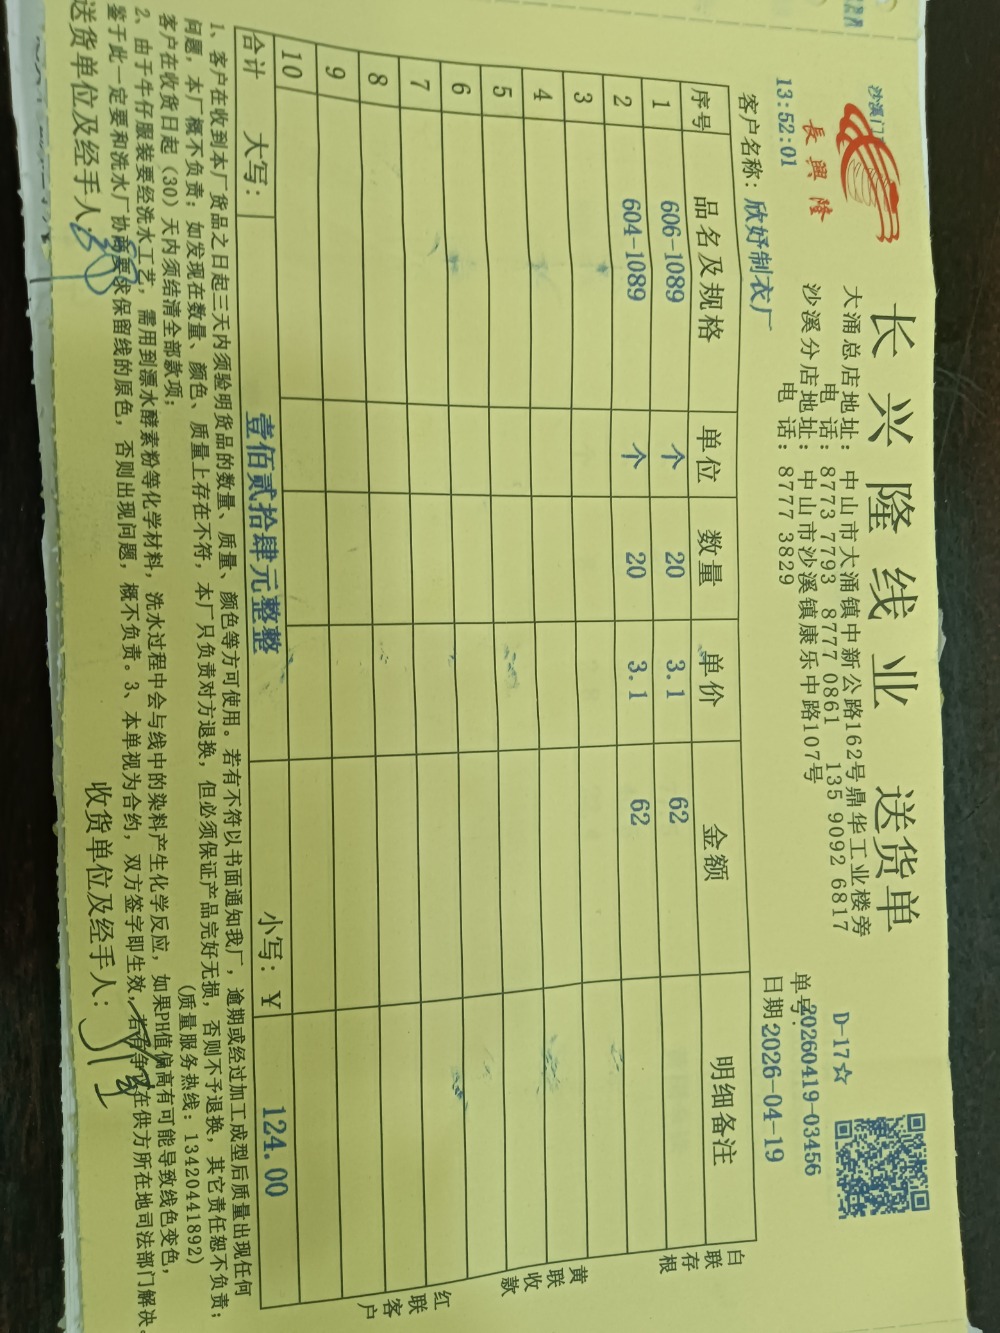 沙溪门
長興隆
长兴隆线业 送货单
大涌总店地址: 中山市大涌镇中新公路162号鼎华工业楼旁
电 话: 8773 7793 8777 0861 135 9092 6817
沙溪分店地址: 中山市沙溪镇康乐中路107号
电 话: 8777 3829
D-17☆
单号: 20260419-03456
日期 2026-04-19
13:52:01
客户名称: 欣妤制衣厂
序号 品名及规格 单位 数量 单价 金额 明细备注
1 606-1089 个 20 3.1 62
2 604-1089 个 20 3.1 62
3
4
5
6
7
8
9
10
合计 大写: 壹佰贰拾肆元整整 小写: ¥ 124.00
白联存根
黄联收款
红联客户
1、客户在收到本厂货品之日起三天内须验明货品的数量、质量、颜色等方可使用。若有不符以书面通知我厂,逾期或经过加工成型后质量出现任何
问题,本厂概不负责;如发现在数量、颜色、质量上存在不符,本厂只负责对方退换,但必须保证产品完好无损,否则不予退换,其它责任恕不负责;
客户在收货日起(30)天内须结清全部款项; (质量服务热线: 13420441892)
2、由于牛仔服装要经洗水工艺,需用到漂水酵素粉等化学材料,洗水过程中会与线中的染料产生化学反应,如果PH值偏高有可能导致线色变色,
鉴于此一定要和洗水厂协商要求保留线的原色,否则出现问题,概不负责。3、本单视为合约,双方签字即生效,若有争议在供方所在地司法部门解决。
送货单位及经手人: 收货单位及经手人: